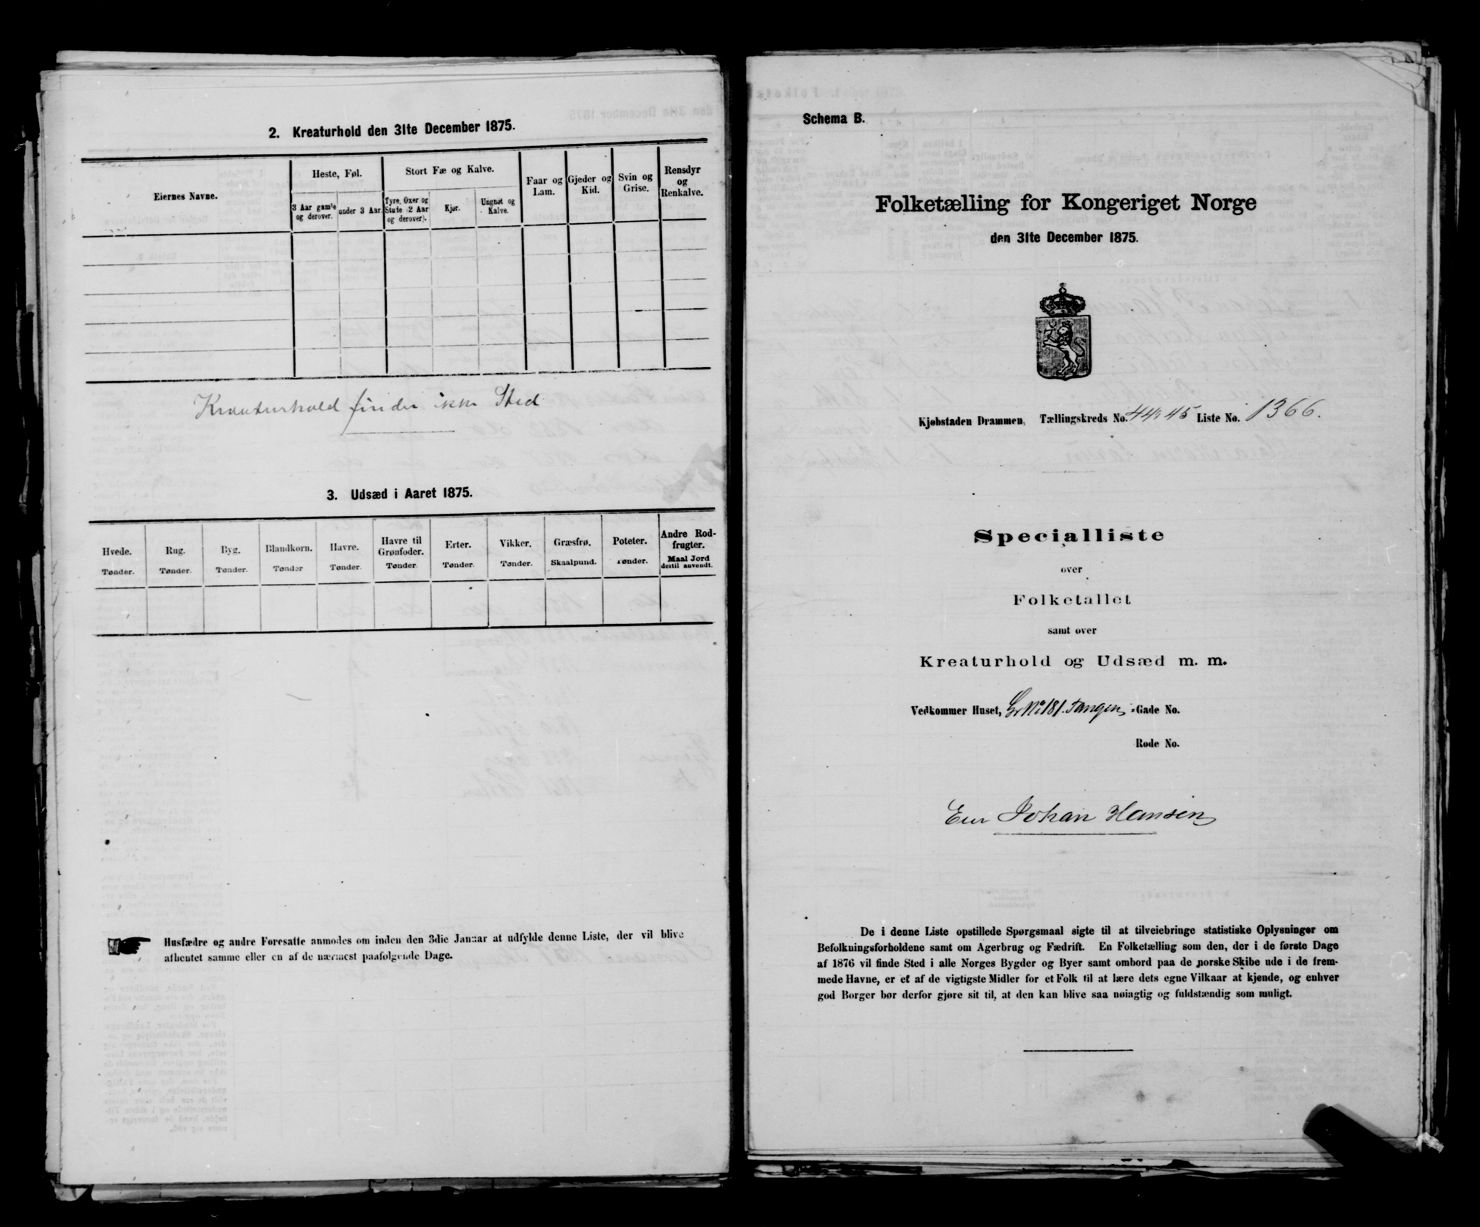 2. Kreaturhold den 31te December 1875.
Eiernes Navne.
Heste, Føl.
3 Aar gamle og derover.
under 3 Aar.
Stort Fæ og Kalve.
Tyre, Oxer og Stute (2 Aar og derover).
Kjør.
Ungnøt og Kalve.
Faar og Lam.
Gjeder og Kid.
Svin og Grise.
Rensdyr og Renkalve.
Kreaturhold finder ikke Sted
3. Udsæd i Aaret 1875.
Hvede. Tønder.
Rug. Tønder.
Byg. Tønder.
Blandkorn. Tønder
Havre. Tønder.
Havre til Grønfoder. Tønder.
Erter. Tønder.
Vikker. Tønder.
Græsfrø. Skaalpund.
Poteter. Tønder.
Andre Rodfrugter. Maal Jord dertil anvendt.
Husfædre og andre Foresatte anmodes om inden den 3die Januar at udfylde denne Liste, der vil blive
afhentet samme eller en af de nærmest paafølgende Dage.
Schema B.
Folketælling for Kongeriget Norge
den 31te December 1875.
Kjøbstaden Drammen, Tællingskreds No. 44&45 Liste No. 1366.
Specialliste
over
Folketallet
samt over
Kreaturhold og Udsæd m. m.
Vedkommer Huset, Gr No 181. Tangen -Gade No.
Rode No.
Eier Johan Hansen
De i denne Liste opstillede Spørgsmaal sigte til at tilveiebringe statistiske Oplysninger om
Befolkningsforholdene samt om Agerbrug og Fædrift. En Folketælling som den, der i de første Dage
af 1876 vil finde Sted i alle Norges Bygder og Byer samt ombord paa de norske Skibe ude i de frem-
mede Havne, er et af de vigtigste Midler for et Folk til at lære dets egne Vilkaar at kjende, og enhver
god Borger bør derfor gjøre sit til, at den kan blive saa nøiagtig og fuldstændig som muligt.